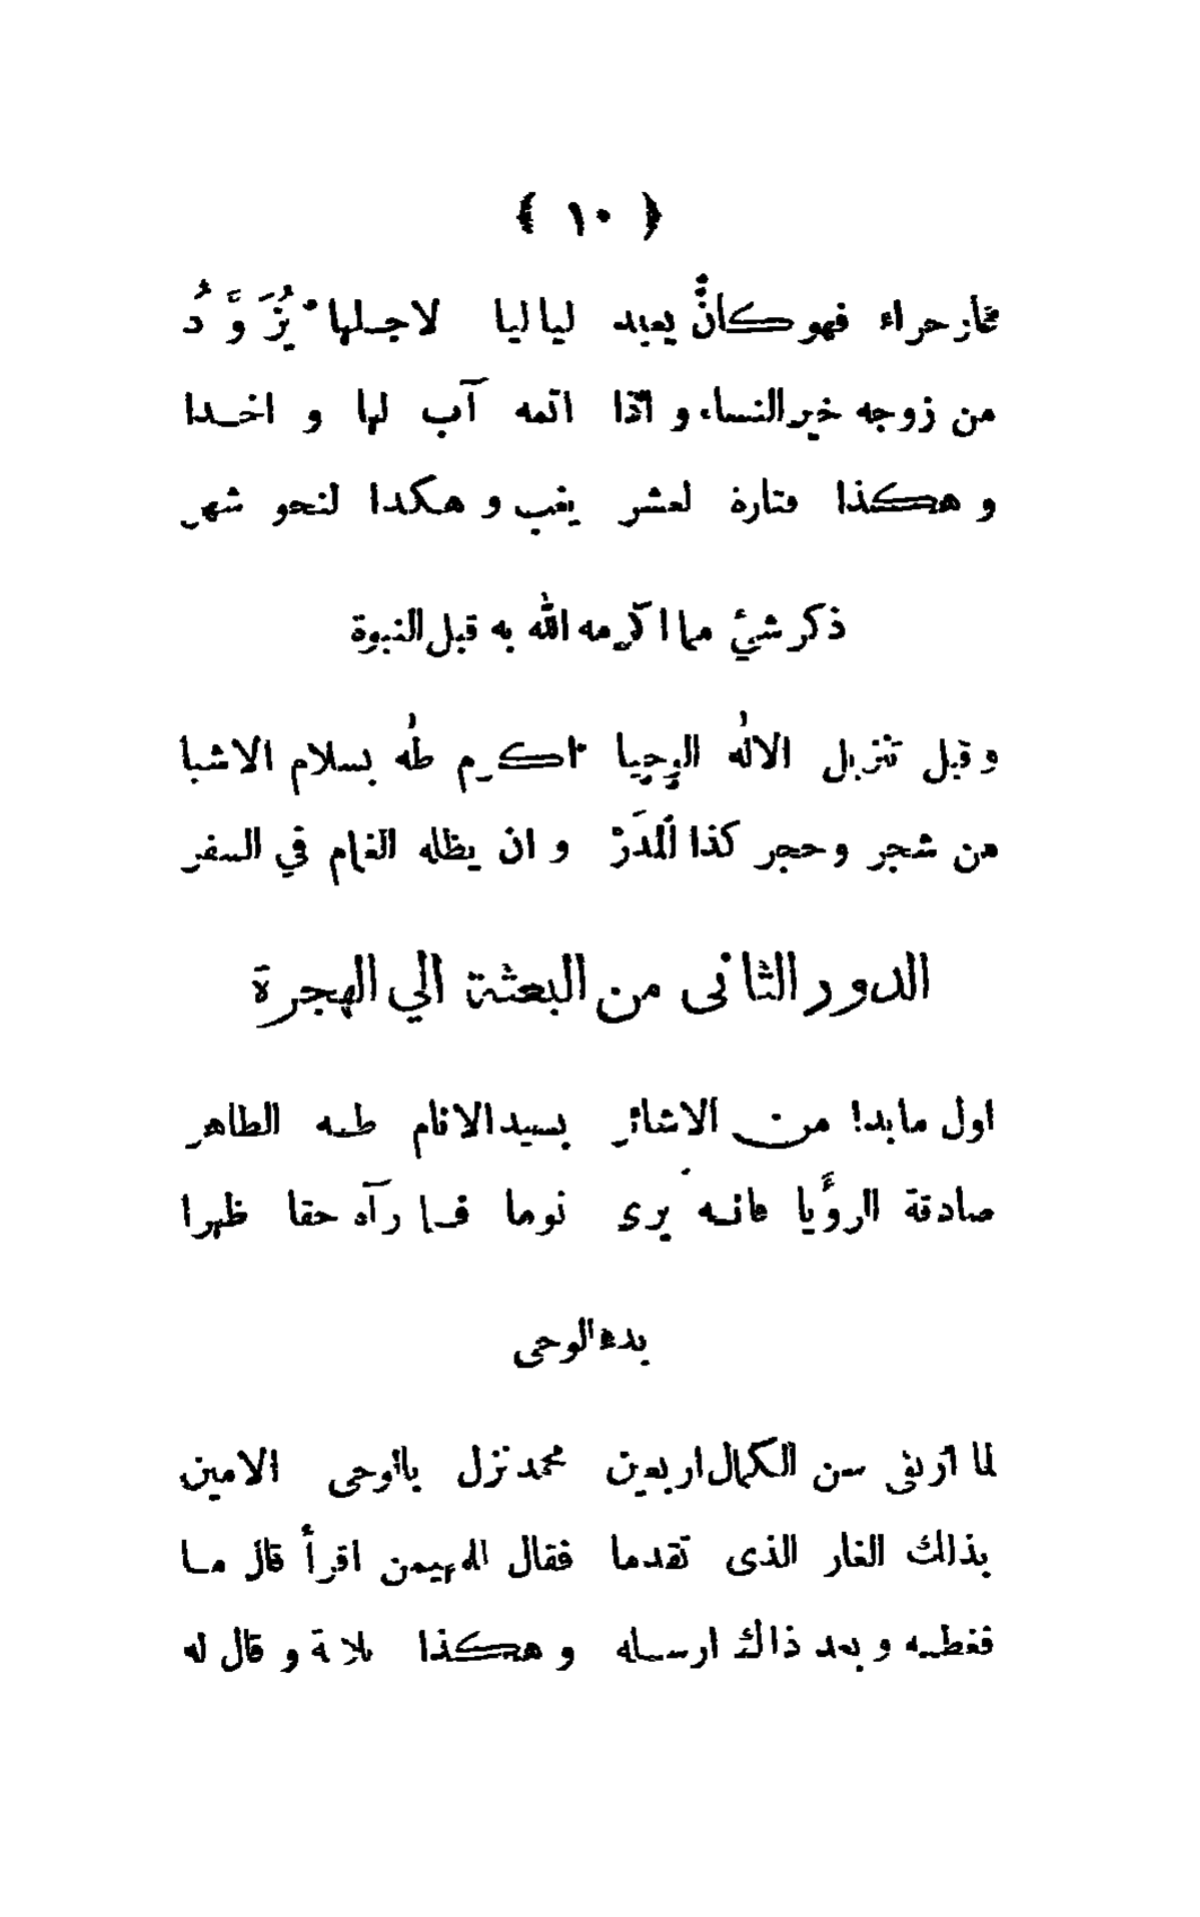 ﴿ ١٠ ﴾
حراء فهو كان يعبد لياليا لاجلها يُزَوَّدُ
من زوجه خير النساء و اذا اتمه آب لها و اخذا
و هكذا فتارة لعشر يغب و هكذا لنحو شهر
ذكر شئ مما اكرمه اللّٰه به قبل النبوة
و قبل تنزيل الالٰه الوحيا اكرم طٰه بسلام الاشيا
من شجر وحجر كذا المدَرْ و ان يظله الغمام في السفر
الدور الثانى من البعثة الي الهجرة
اول ما بدا من الاشائر بسيد الانام طه الطاهر
صادقة الرؤيا فانه يرى نوما فما رآه حقا ظهرا
بدء الوحى
لما ارتقى سن الكمال اربعين محمد نزل بالوحى الامين
بذلك الغار الذى تقدما فقال للمهيمن اقرأ قال ما
فغطه و بعد ذاك ارسله و هكذا ثلاثة و قال له